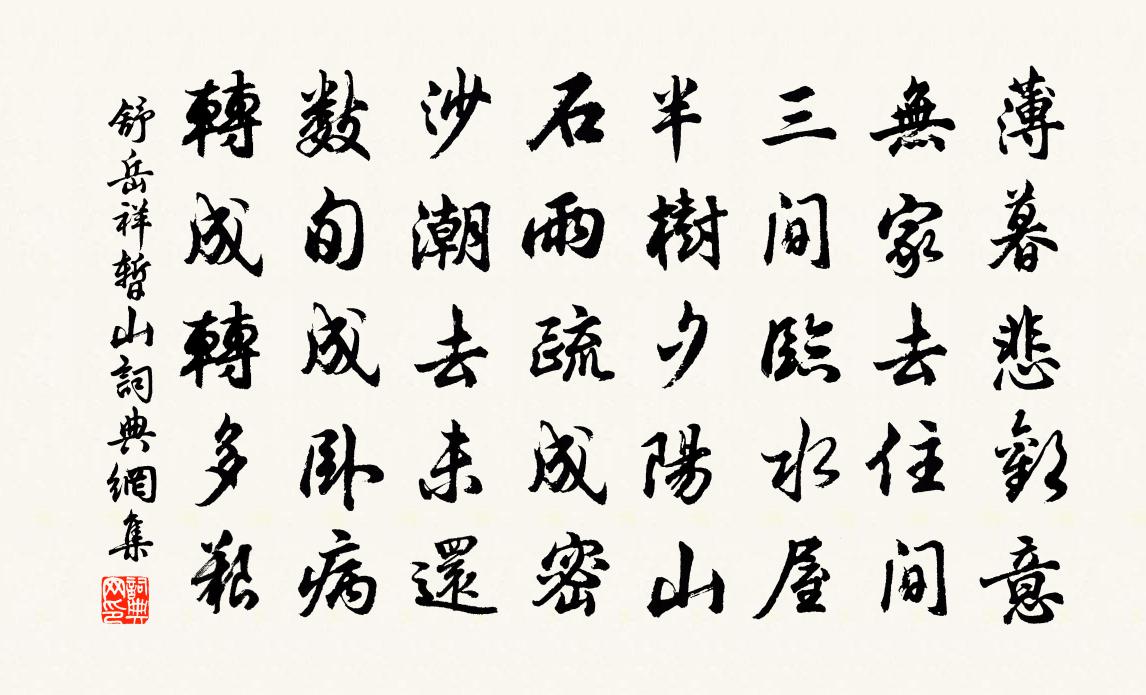 薄暮悲歡意
無家去住間
三間臨水屋
半樹夕陽山
石雨疏成密
沙潮去未還
數旬成臥病
轉成轉多艱
舒岳祥暫山詞典網集
詞典网印